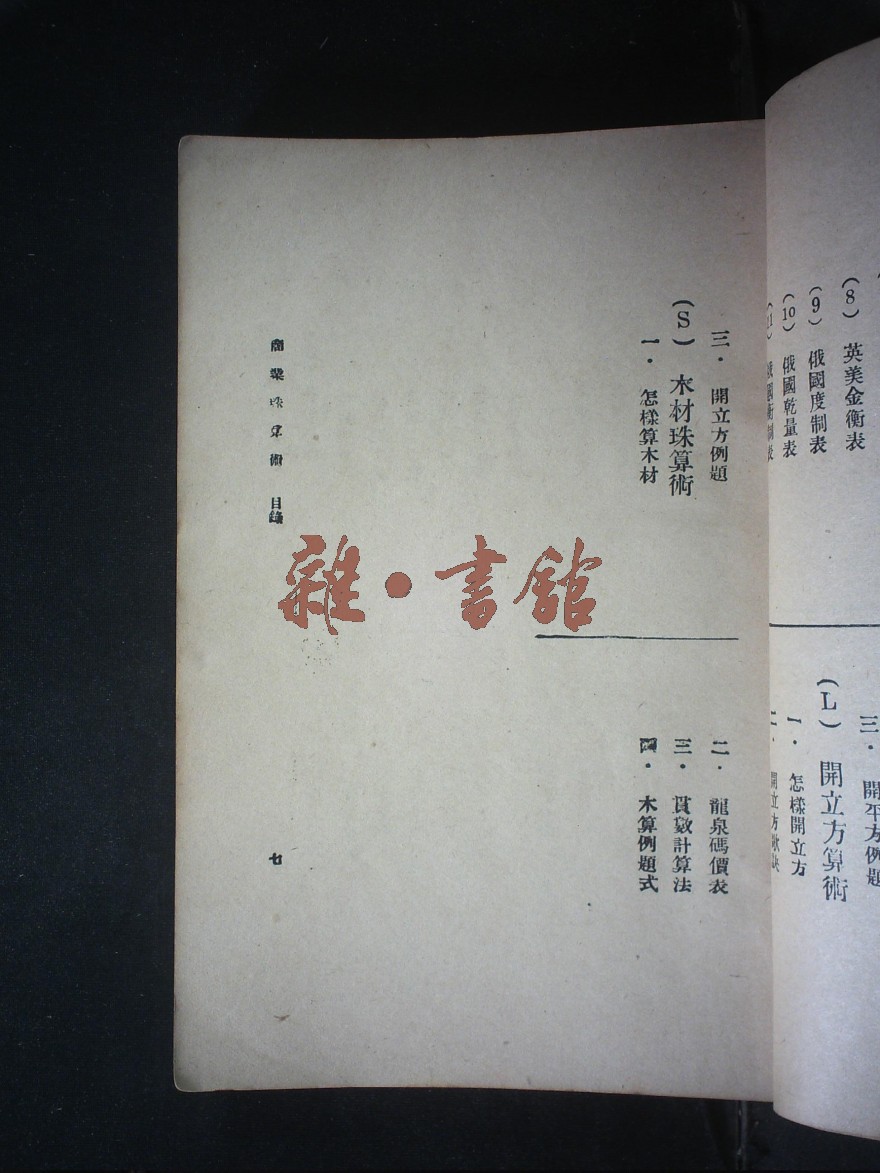 (8) 英美金衡表
(9) 俄國度制表
(10) 俄國乾量表
(11) 俄國衡制表
三・開平方例題
(L) 開立方算術
一・怎樣開立方
二・開立方歌訣
三・開立方例題
(S) 木材珠算術
一・怎樣算木材
二・龍泉碼價表
三・貫數計算法
四・木算例題式
商業珠算術 目錄
七
雜・書館